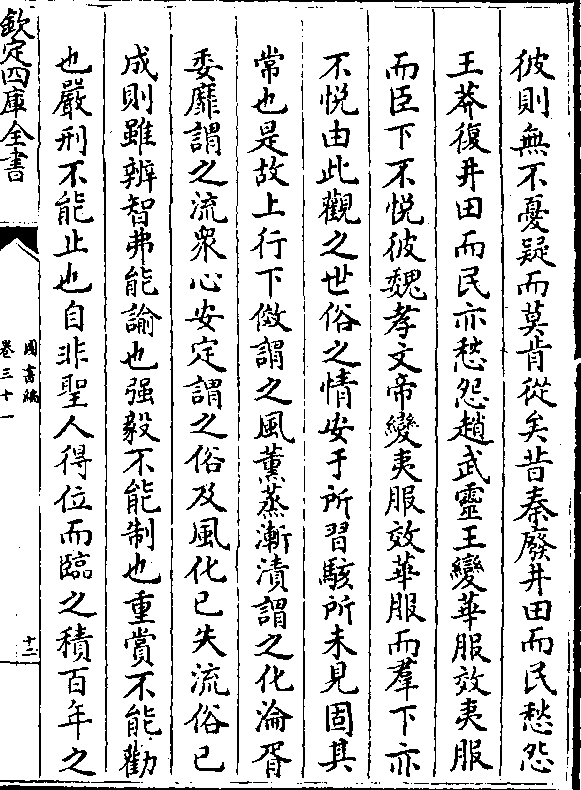 彼則無不憂疑而莫肯從矣昔秦廢井田而民愁怨
王莽復井田而民亦愁怨趙武靈王變華服效夷服
而臣下不悅彼魏孝文帝變夷服效華服而羣下亦
不悅由此觀之世俗之情安于所習駭所未見固其
常也是故上行下傚謂之風薰蒸漸漬謂之化淪胥
委靡謂之流衆心安定謂之俗及風化已失流俗已
成則雖辨智弗能諭也强毅不能制也重賞不能勸
也嚴刑不能止也自非聖人得位而臨之積百年之
欽定四庫全書
圖書編
卷三十一
十二